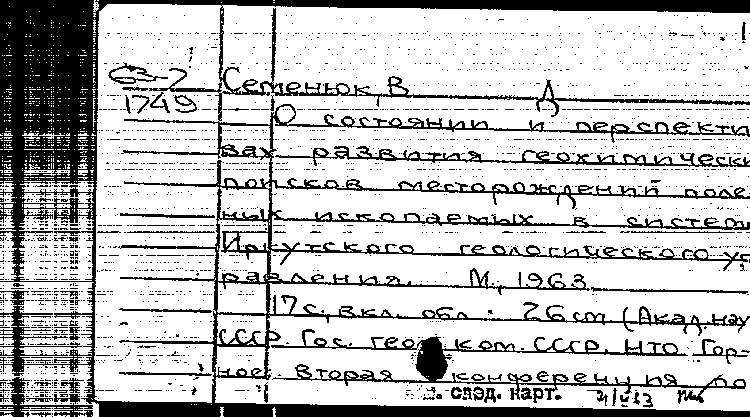 63-7
1749
Семенюк, В Д
О состоянии и перспекти
вах развития геохимически
поисков месторождений поле
ных ископаемых в систем
Иркутского геологического уп
равления. М, 1963.
17 с, вкл. обл. 26 cm (Акад. нау
СССР. Гос. геол ком. СССР. НТО Гор-
ное. Вторая конференция по
след. карт.